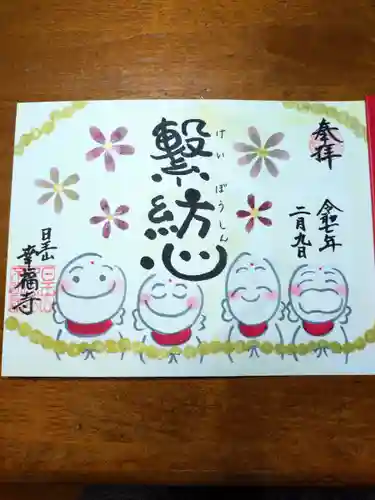 奉拝
令和七年
二月九日
繋紡心
けいぼうしん
日王山
幸福寺